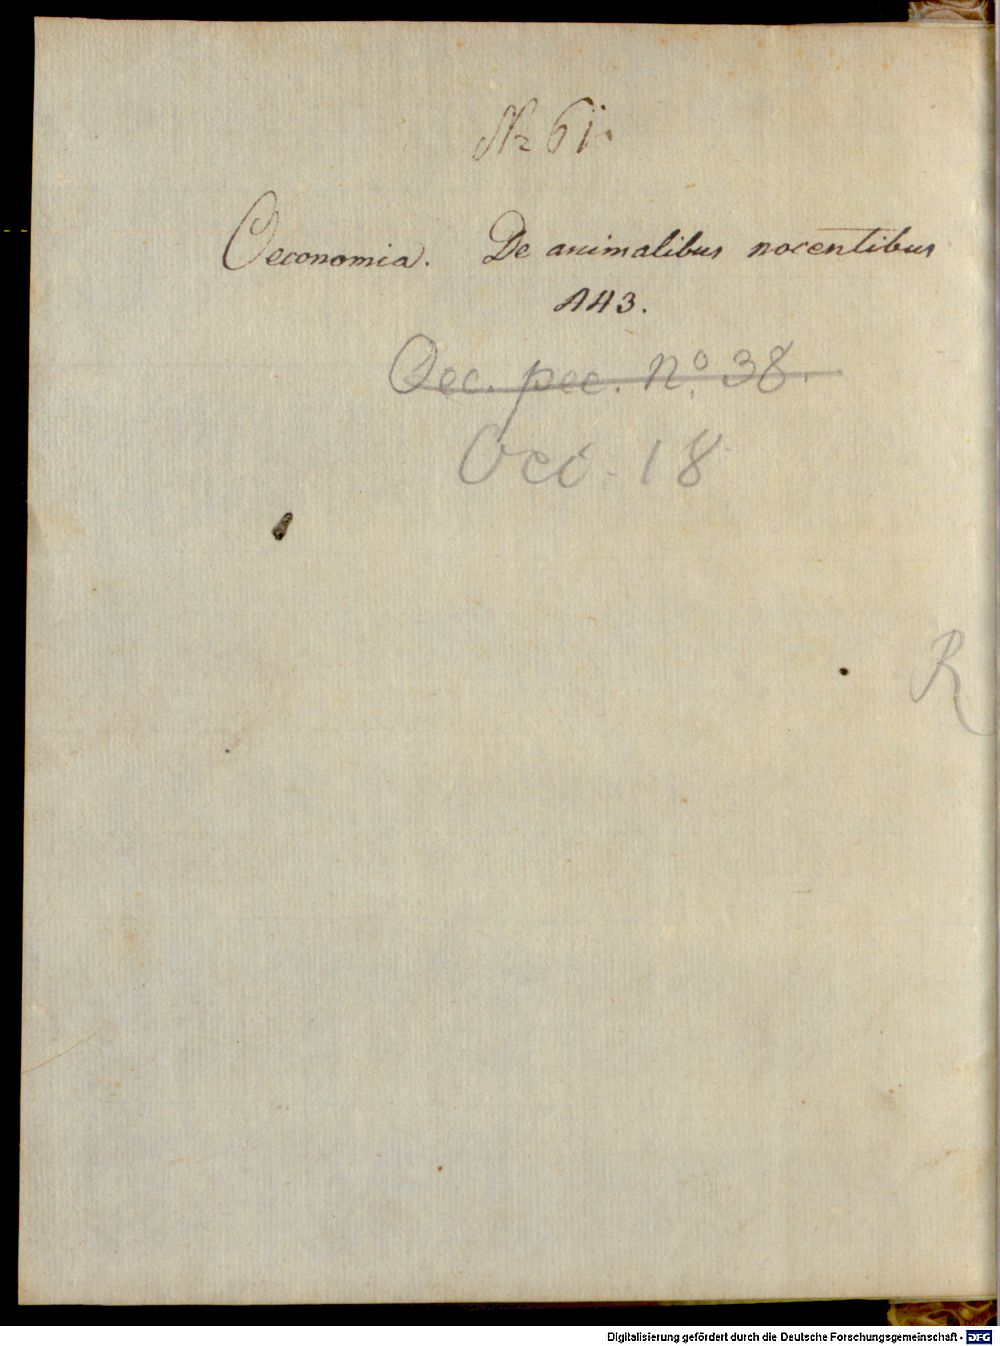 Nr 61.
Oeconomia. De animalibus nocentibus
A43.
Oec. pec. No. 38.
Oec. 18
R
Digitalisierung gefördert durch die Deutsche Forschungsgemeinschaft - DFG